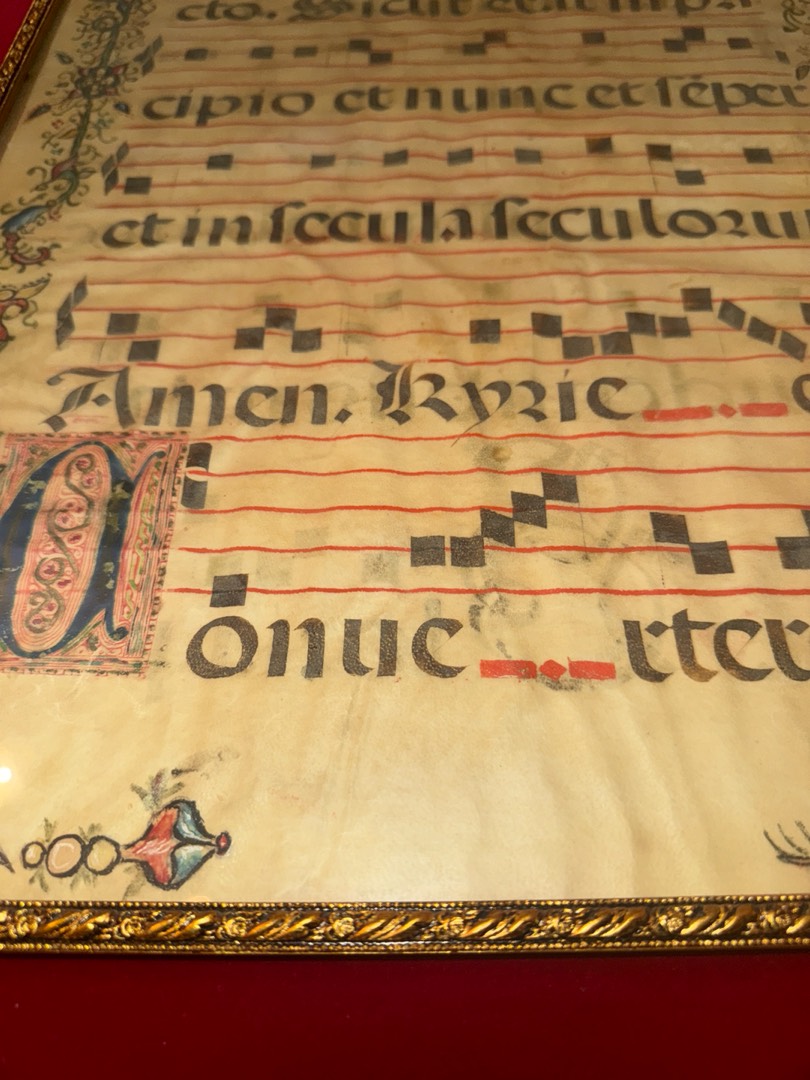 cto. Sicut erat in
cipio et nunc et ſéper
et in ſecula ſeculoꝛu
Amen. Kyꝛie
Conue rter